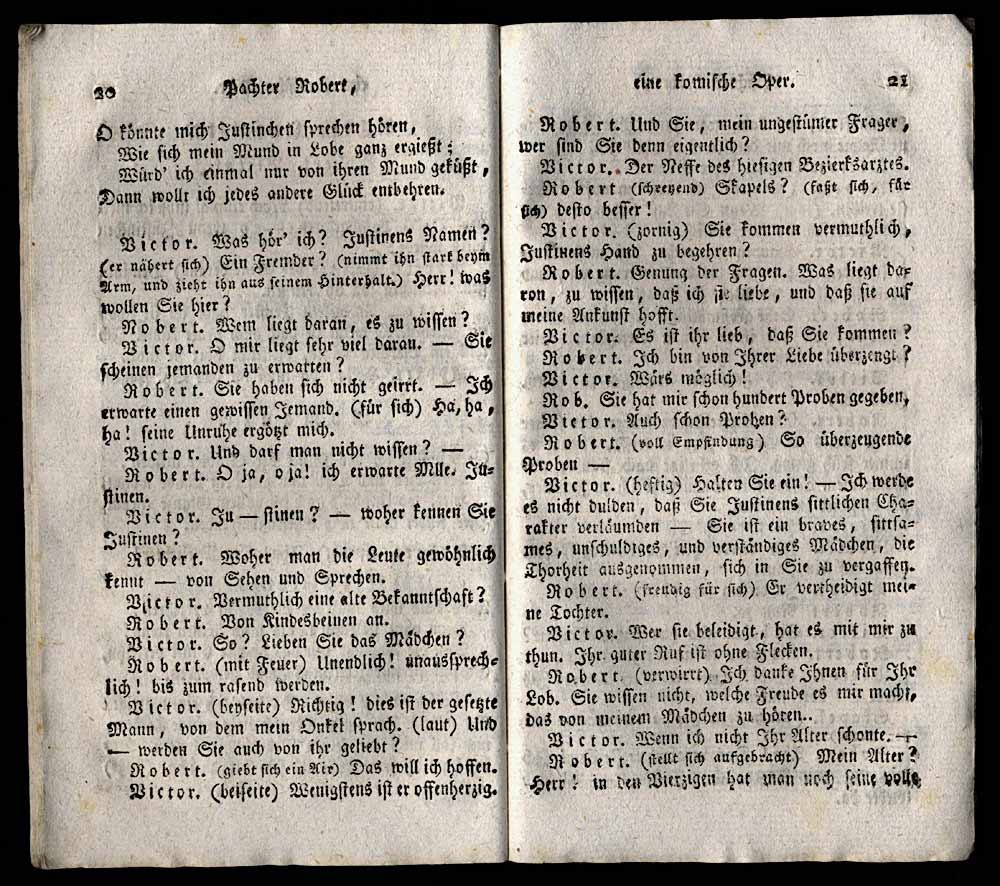 20 Pachter Robert,
O könnte mich Justinchen sprechen hören,
Wie sich mein Mund in Lobe ganz ergießt;
Würd' ich einmal nur von ihren Mund geküßt,
Dann wollt ich jedes andere Glück entbehren.
Victor. Was hör' ich? Justinens Namen?
(er nähert sich) Ein Fremder? (nimmt ihn stark beym
Arm, und zieht ihn aus seinem Hinterhalt.) Herr! was
wollen Sie hier?
Robert. Wem liegt daran, es zu wissen?
Victor. O mir liegt sehr viel darau. — Sie
scheinen jemanden zu erwarten?
Robert. Sie haben sich nicht geirrt. — Ich
erwarte einen gewissen Jemand. (für sich) Ha, ha,
ha! seine Unruhe ergötzt mich.
Victor. Und darf man nicht wissen? —
Robert. O ja, o ja! ich erwarte Mlle. Ju-
stinen.
Victor. Ju — stinen? — woher kennen Sie
Justinen?
Robert. Woher man die Leute gewöhnlich
kennt — von Sehen und Sprechen.
Victor. Vermuthlich eine alte Bekanntschaft?
Robert. Von Kindesbeinen an.
Victor. So? Lieben Sie das Mädchen?
Robert. (mit Feuer) Unendlich! unaussprech-
lich! bis zum rasend werden.
Victor. (beyseite) Richtig! dies ist der gesetzte
Mann, von dem mein Onkel sprach. (laut) Und
— werden Sie auch von ihr geliebt?
Robert. (giebt sich ein Air) Das will ich hoffen.
Victor. (beiseite) Wenigstens ist er offenherzig.
eine komische Oper. 21
Robert. Und Sie, mein ungestümer Frager,
wer sind Sie denn eigentlich?
Victor. Der Neffe des hiesigen Bezierksarztes.
Robert (schreyend) Skapels? (faßt sich, für
sich) desto besser!
Victor. (zornig) Sie kommen vermuthlich,
Justinens Hand zu begehren?
Robert. Genung der Fragen. Was liegt da-
ron, zu wissen, daß ich sie liebe, und daß sie auf
meine Ankunst hofft.
Victor. Es ist ihr lieb, daß Sie kommen?
Robert. Ich bin von Ihrer Liebe überzengt?
Victor. Wärs möglich!
Rob. Sie hat mir schon hundert Proben gegeben,
Victor. Auch schon Proben?
Robert. (voll Empfindung) So überzeugende
Proben —
Victor. (heftig) Halten Sie ein! — Ich werde
es nicht dulden, daß Sie Justinens sittlichen Cha-
rakter verläumden — Sie ist ein braves, sittsa-
mes, unschuldiges, und verständiges Mädchen, die
Thorheit ausgenommen, sich in Sie zu vergaffen.
Robert. (freudig für sich) Er vertheidigt mei-
ne Tochter.
Victor. Wer sie beleidigt, hat es mit mir zu
thun. Ihr guter Ruf ist ohne Flecken.
Robert. (verwirrt) Ich danke Ihnen für Ihr
Lob. Sie wissen nicht, welche Freude es mir macht,
das von meinem Mädchen zu hören..
Victor. Wenn ich nicht Ihr Alter schonte. —
Robert. (stellt sich aufgebracht) Mein Alter?
Herr! in den Vierzigen hat man noch seine volle